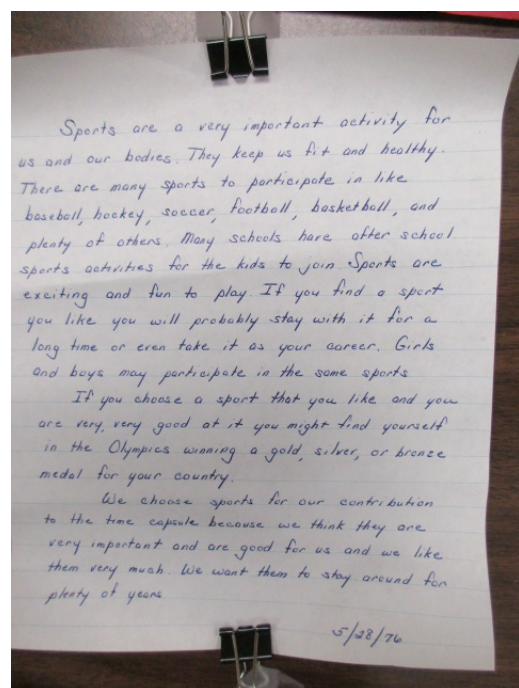 Sports are a very important activity for
us and our bodies. They keep us fit and healthy.
There are many sports to participate in like
baseball, hockey, soccer, football, basketball, and
plenty of others. Many schools have after school
sports activities for the kids to join. Sports are
exciting and fun to play. If you find a sport
you like you will probably stay with it for a
long time or even take it as your career. Girls
and boys may participate in the same sports
If you choose a sport that you like and you
are very, very good at it you might find yourself
in the Olympics winning a gold, silver, or bronze
medal for your country.
We choose sports for our contribution
to the time capsule because we think they are
very important and are good for us and we like
them very much. We want them to stay around for
plenty of years
5/28/76